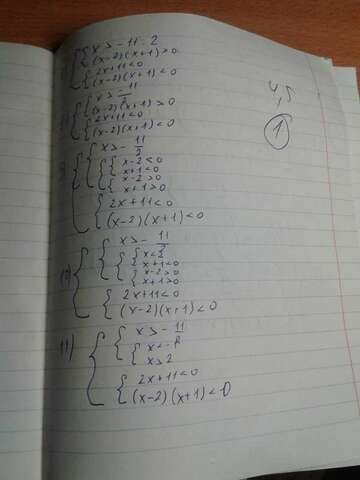 { { x > -11 : 2
(x-2)(x+1) > 0
{ 2x+11 < 0
(x-2)(x+1) < 0
{ { x > -11/2
(x-2)(x+1) > 0
{ 2x+11 < 0
(x-2)(x+1) < 0
4,5
①
{ { x > - 11/2
{ { x-2 < 0
x+1 < 0
{ x-2 > 0
x+1 > 0
{ 2x+11 < 0
(x-2)(x+1) < 0
10) { { x > - 11/2
{ { x < 2
x+1 < 0
{ x-2 > 0
x+1 > 0
{ 2x+11 < 0
(x-2)(x+1) < 0
11) { { x > - 11
{ x < -
x > 2
{ 2x+11 < 0
(x-2)(x+1) < 0